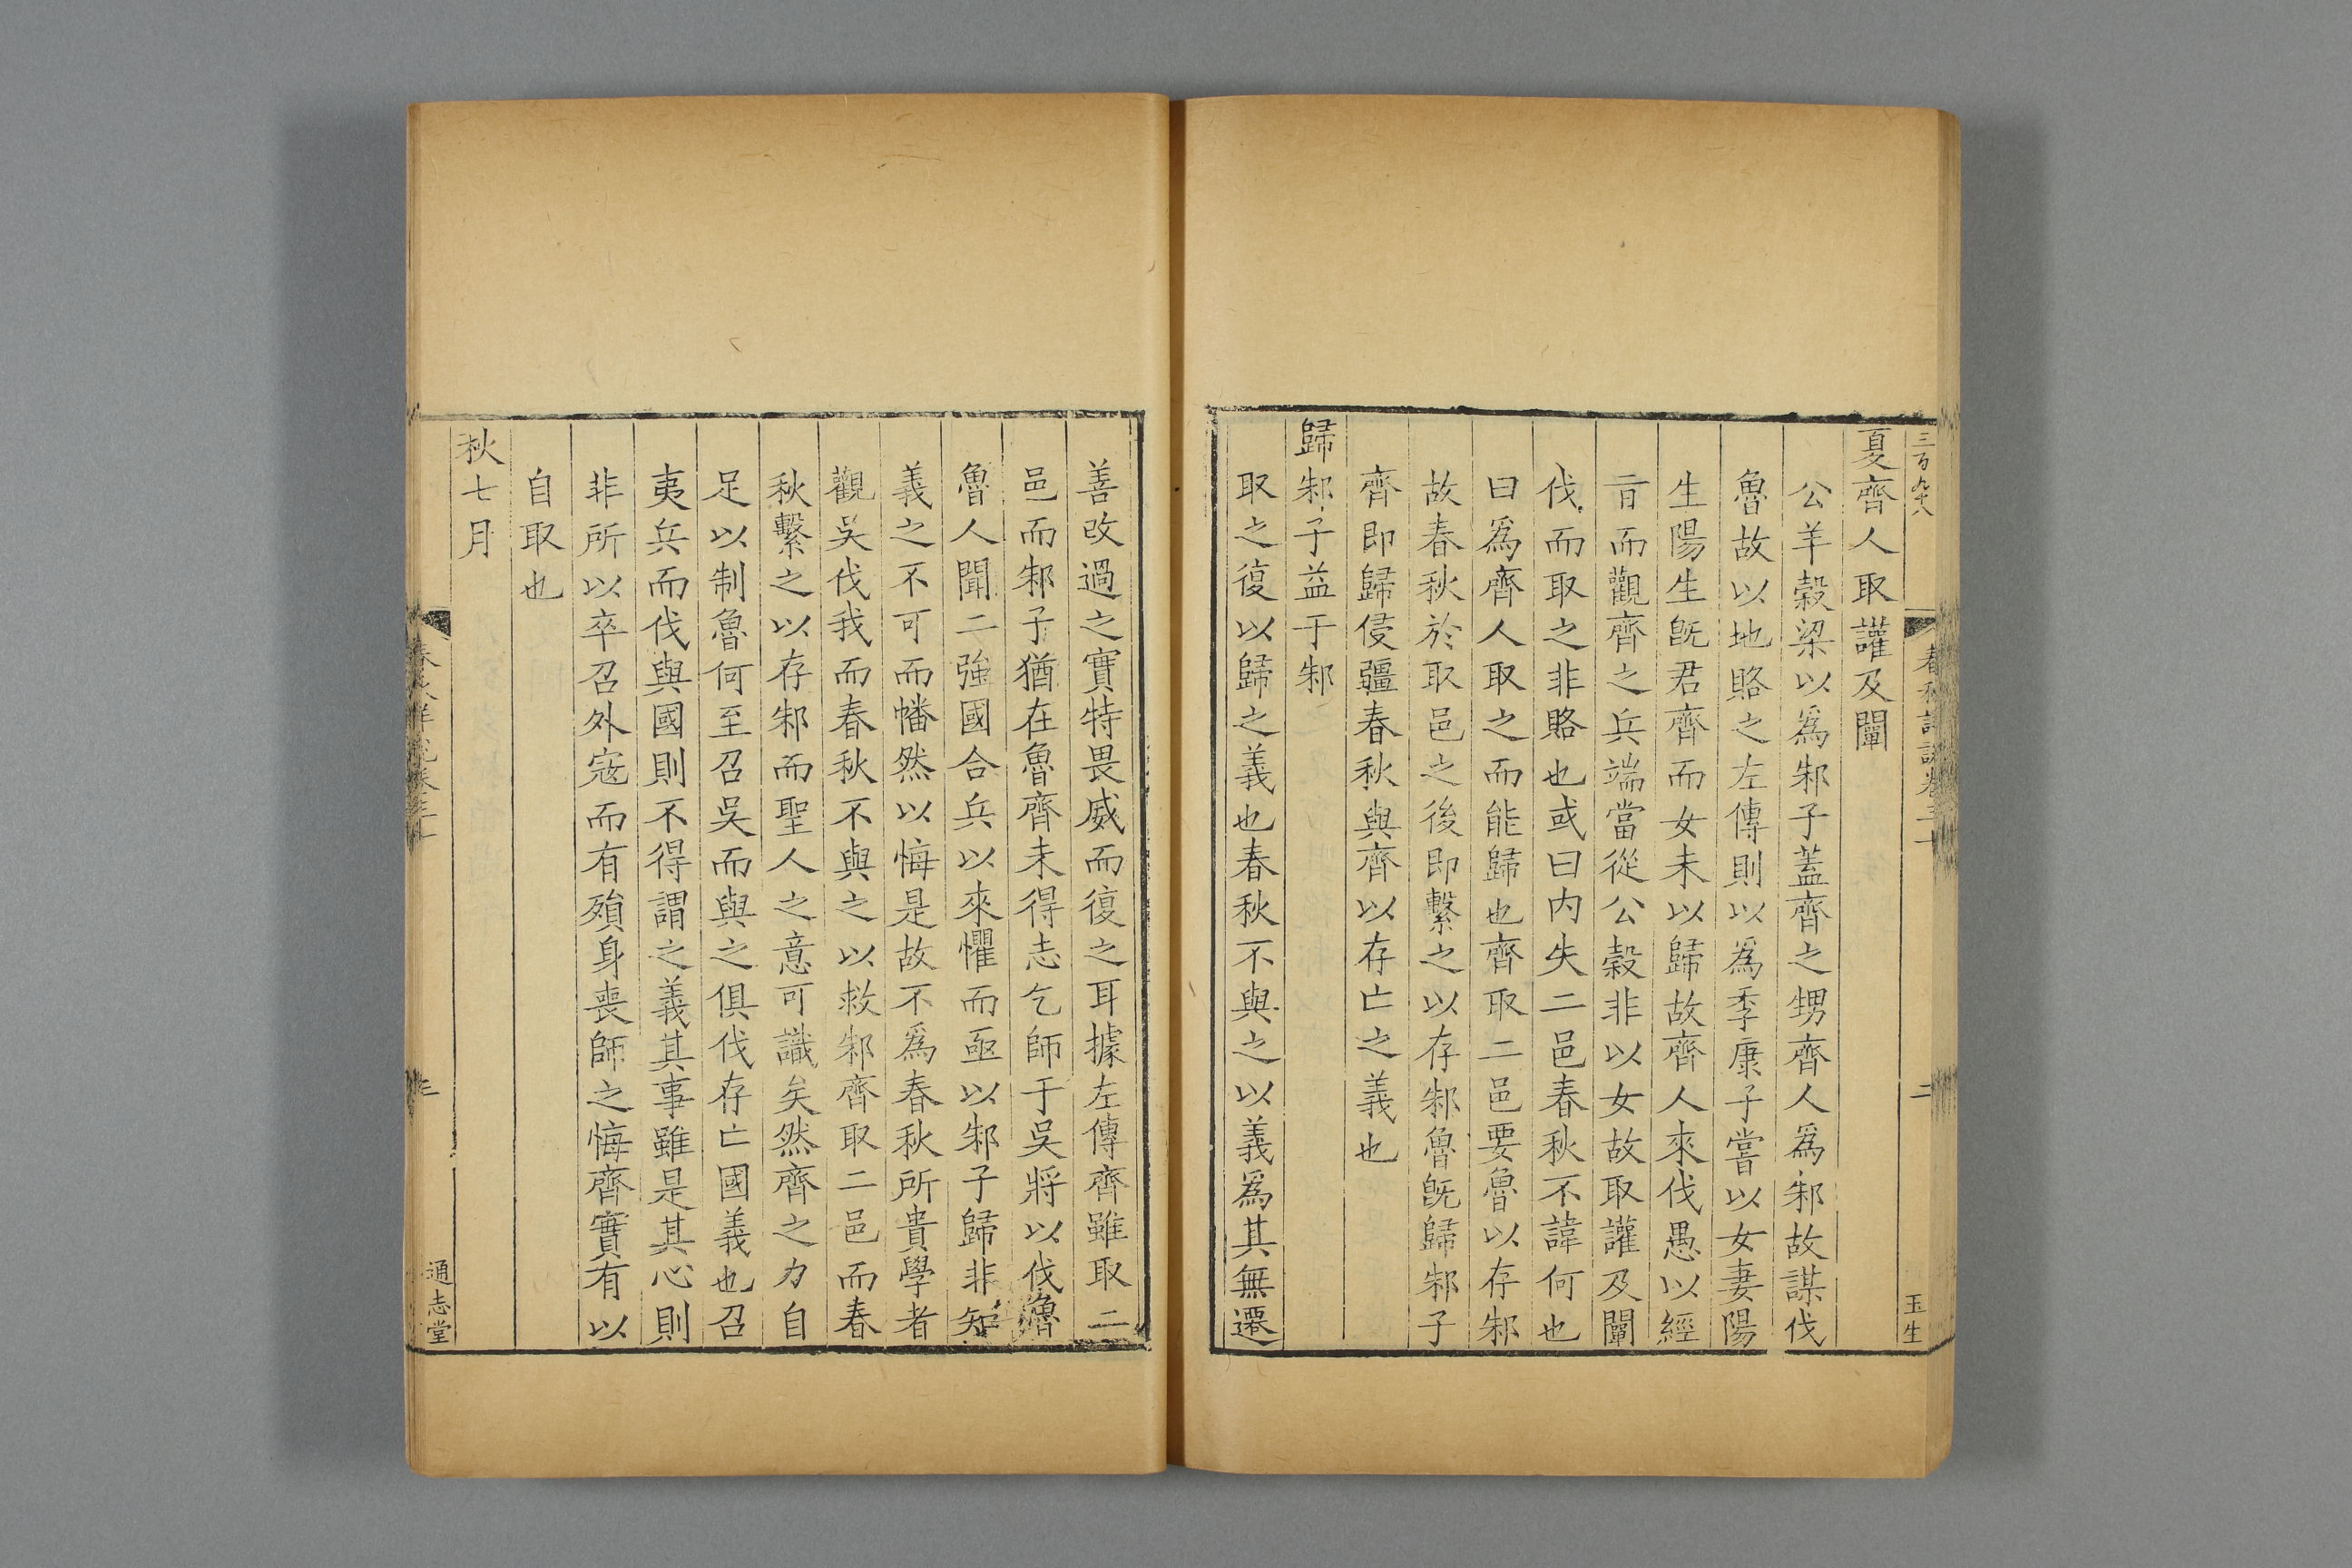 三百九十八
夏齊人取讙及闡
公羊穀梁以爲邾子蓋齊之甥齊人爲邾故謀伐
魯故以地賂之左傳則以爲季康子嘗以女妻陽
生陽生旣君齊而女未以歸故齊人來伐愚以經
㫖而觀齊之兵端當從公穀非以女故取讙及闡
伐而取之非賂也或曰内失二邑春秋不諱何也
曰爲齊人取之而能歸也齊取二邑要魯以存邾
故春秋於取邑之後即繫之以存邾魯旣歸邾子
齊即歸侵疆春秋與齊以存亡之義也
歸邾子益于邾
取之復以歸之義也春秋不與之以義爲其無遷
二
玉生
善改過之實特畏威而復之耳據左傳齊雖取二
邑而邾子猶在魯齊未得志乞師于吳將以伐魯
魯人聞二強國合兵以來懼而亟以邾子歸非知
義之不可而幡然以悔是故不爲春秋所貴學者
觀吳伐我而春秋不與之以救邾齊取二邑而春
秋繫之以存邾而聖人之意可識矣然齊之力自
足以制魯何至召吳而與之俱伐存亡國義也召
夷兵而伐與國則不得謂之義其事雖是其心則
非所以卒召外寇而有殞身喪師之悔齊實有以
自取也
秋七月
通志堂